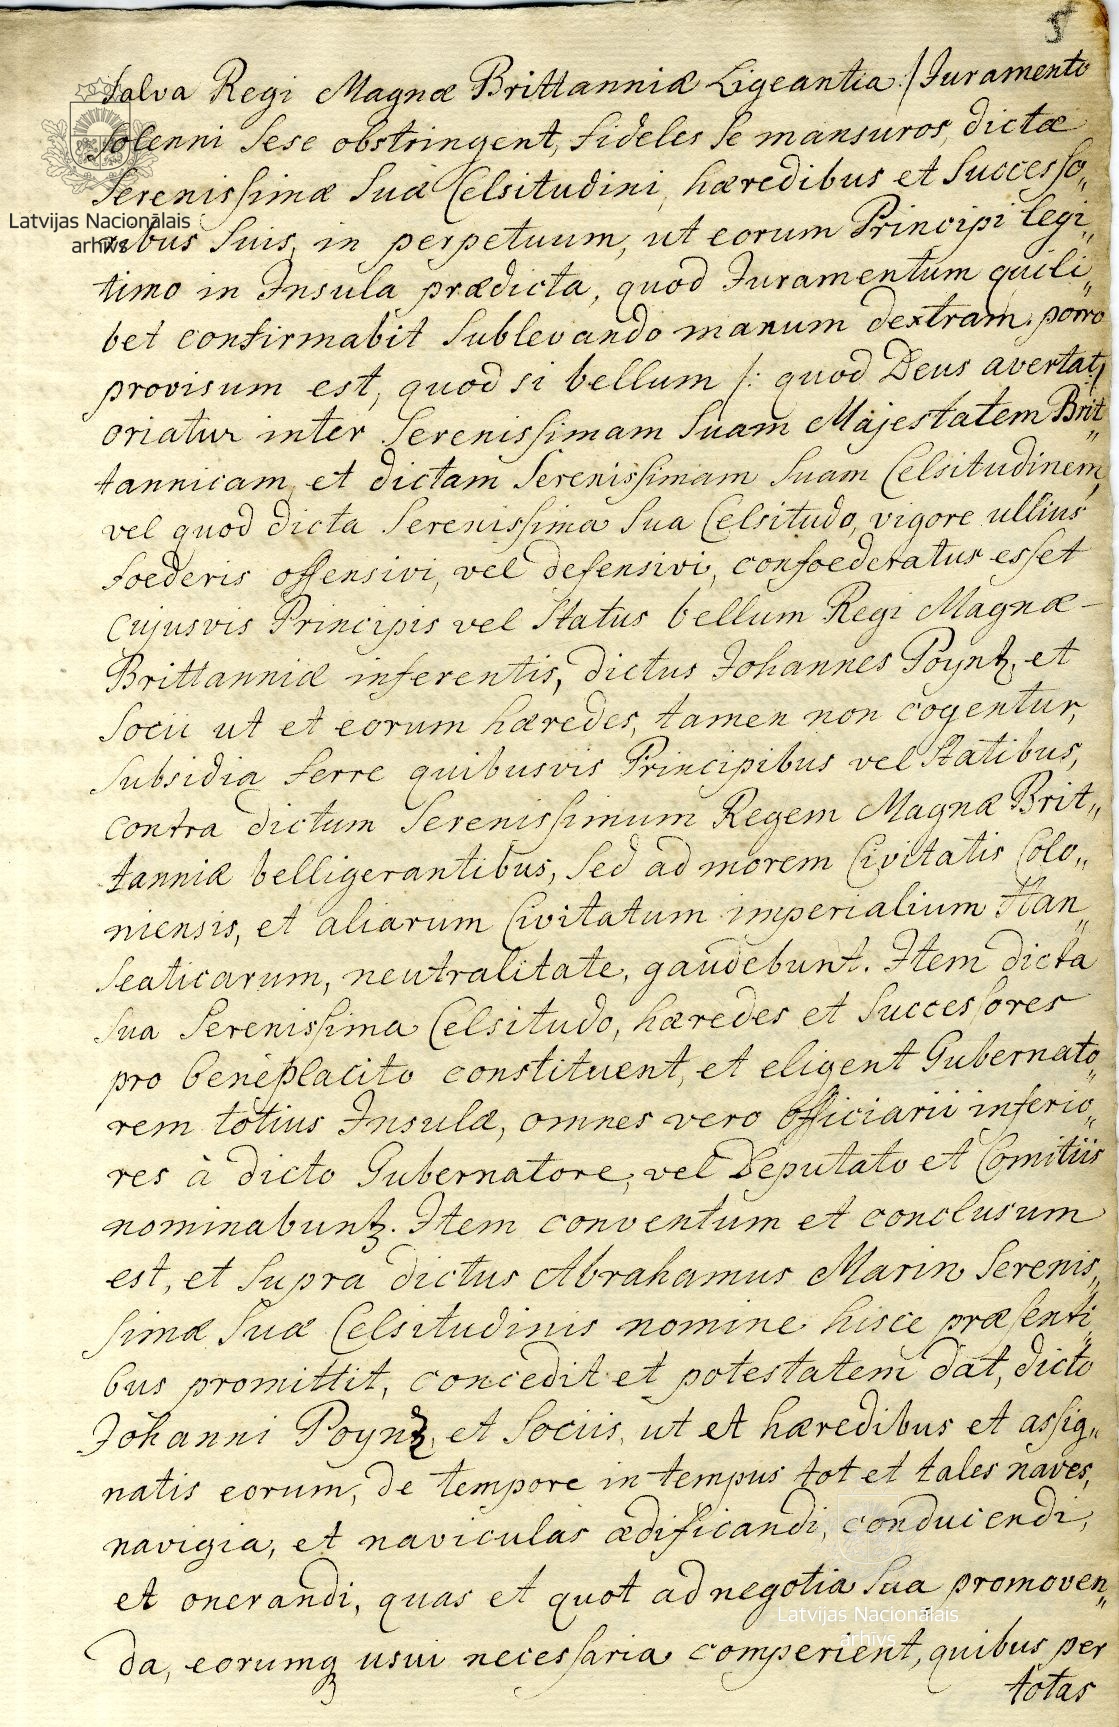 5
Salva Regi Magnæ Brittanniæ Ligeantia :/ Juramento
Solenni Sese obstringent, fideles Se mansuros, dictæ
Serenissimæ Suæ Celsitudini, hæredibus et Successo„
ribus Suis, in perpetuum, ut eorum Principi legi„
timo in Insula prædicta, quod Juramentum quili„
bet confirmabit Sublevando manum dextram. porro
provisum est, quod si bellum /: quod Deus avertat :/
oriatur inter Serenissimam Suam Majestatem Brit„
tannicam, et dictam Serenissimam Suam Celsitudinem,
vel quod dicta Serenissima Sua Celsitudo, vigore ullius
foederis offensivi, vel defensivi, confoederatus esset
Cujusvis Principis vel Status bellum Regi Magnæ –
Brittanniæ inferentis, dictus Johannes Poyntz, et
Socii ut et eorum hæredes, tamen non cogentur,
Subsidia ferre quibusvis Principibus vel Statibus,
contra dictum Serenissimum Regem Magnæ Brit„
tanniæ belligerantibus, Sed ad morem Civitatis Colo„
niensis, et aliarum Civitatum imperialium Han„
Seaticarum, neutralitate, gaudebunt. Item dicta
Sua Serenissima Celsitudo, hæredes et Successores
pro beneplacito constituent, et eligent Gubernato„
rem totius Insulæ, omnes vero officiarii inferio„
res à dicto Gubernatore, vel Deputato et Comitiis
nominabuntz. Item conventum et conclusum
est, et Supra dictus Abrahamus Marin Serenis„
simæ Suæ Celsitudinis nomine hisce præsenti„
bus promittit, concedit et potestatem dat, dicto
Johanni Poyntz, et Sociis, ut et hæredibus et assig„
natis eorum, de tempore in tempus tot et tales naves,
navigia, et naviculas ædificandi, conducendi,
et onerandi, quas et quot ad negotia Sua promoven„
da, eorumq usui necessaria comperient, quibus per
totas
Latvijas Nacionālais
arhīvs
Latvijas Nacionālais
arhīvs